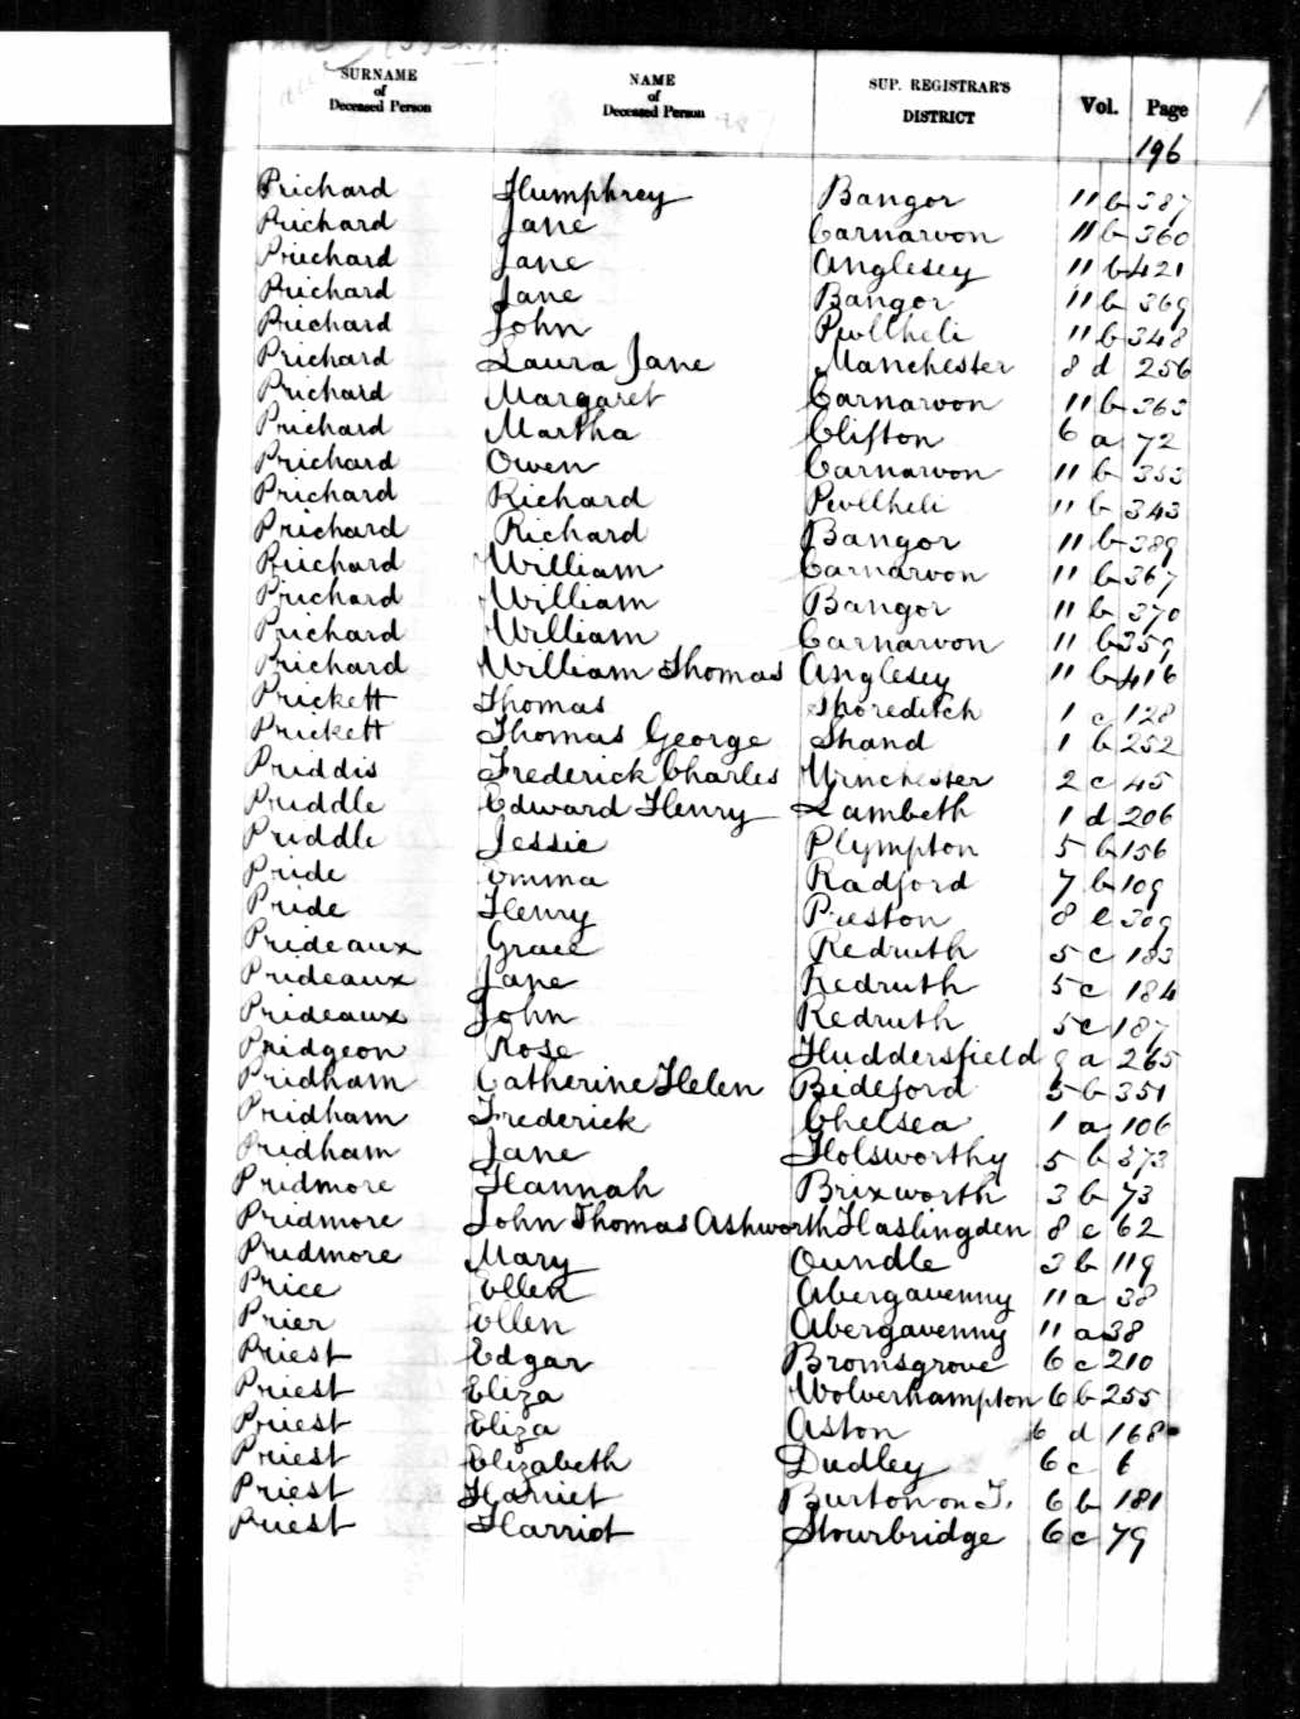 SURNAME of Deceased Person NAME of Deceased Person SUP. REGISTRAR'S DISTRICT Vol. Page
196
Prichard Humphrey Bangor 11 b 387
Prichard Jane Carnarvon 11 b 360
Prichard Jane Anglesey 11 b 421
Prichard Jane Bangor 11 b 369
Prichard John Pwllheli 11 b 348
Prichard Laura Jane Manchester 8 d 256
Prichard Margaret Carnarvon 11 b 363
Prichard Martha Clifton 6 a 72
Prichard Owen Carnarvon 11 b 353
Prichard Richard Pwllheli 11 b 343
Prichard Richard Bangor 11 b 389
Prichard William Carnarvon 11 b 367
Prichard William Bangor 11 b 370
Prichard William Carnarvon 11 b 359
Prichard William Thomas Anglesey 11 b 416
Prickett Thomas Shoreditch 1 c 128
Prickett Thomas George Strand 1 b 252
Priddis Frederick Charles Winchester 2 c 45
Priddle Edward Henry Lambeth 1 d 206
Priddle Jessie Plympton 5 b 156
Pride Emma Radford 7 b 109
Pride Henry Preston 8 e 309
Prideaux Grace Redruth 5 c 183
Prideaux Jane Redruth 5 c 184
Prideaux John Redruth 5 c 187
Pridgeon Rose Huddersfield 9 a 265
Pridham Catherine Helen Bideford 5 b 351
Pridham Frederick Chelsea 1 a 106
Pridham Jane Holsworthy 5 b 373
Pridmore Hannah Brixworth 3 b 73
Pridmore John Thomas Ashworth Haslingden 8 e 62
Pridmore Mary Oundle 3 b 119
Price Ellen Abergavenny 11 a 38
Prier Ellen Abergavenny 11 a 38
Priest Edgar Bromsgrove 6 c 210
Priest Eliza Wolverhampton 6 b 255
Priest Eliza Aston 6 d 168
Priest Elizabeth Dudley 6 c 6
Priest Harriet Burton on T. 6 b 181
Priest Harriot Stourbridge 6 c 79